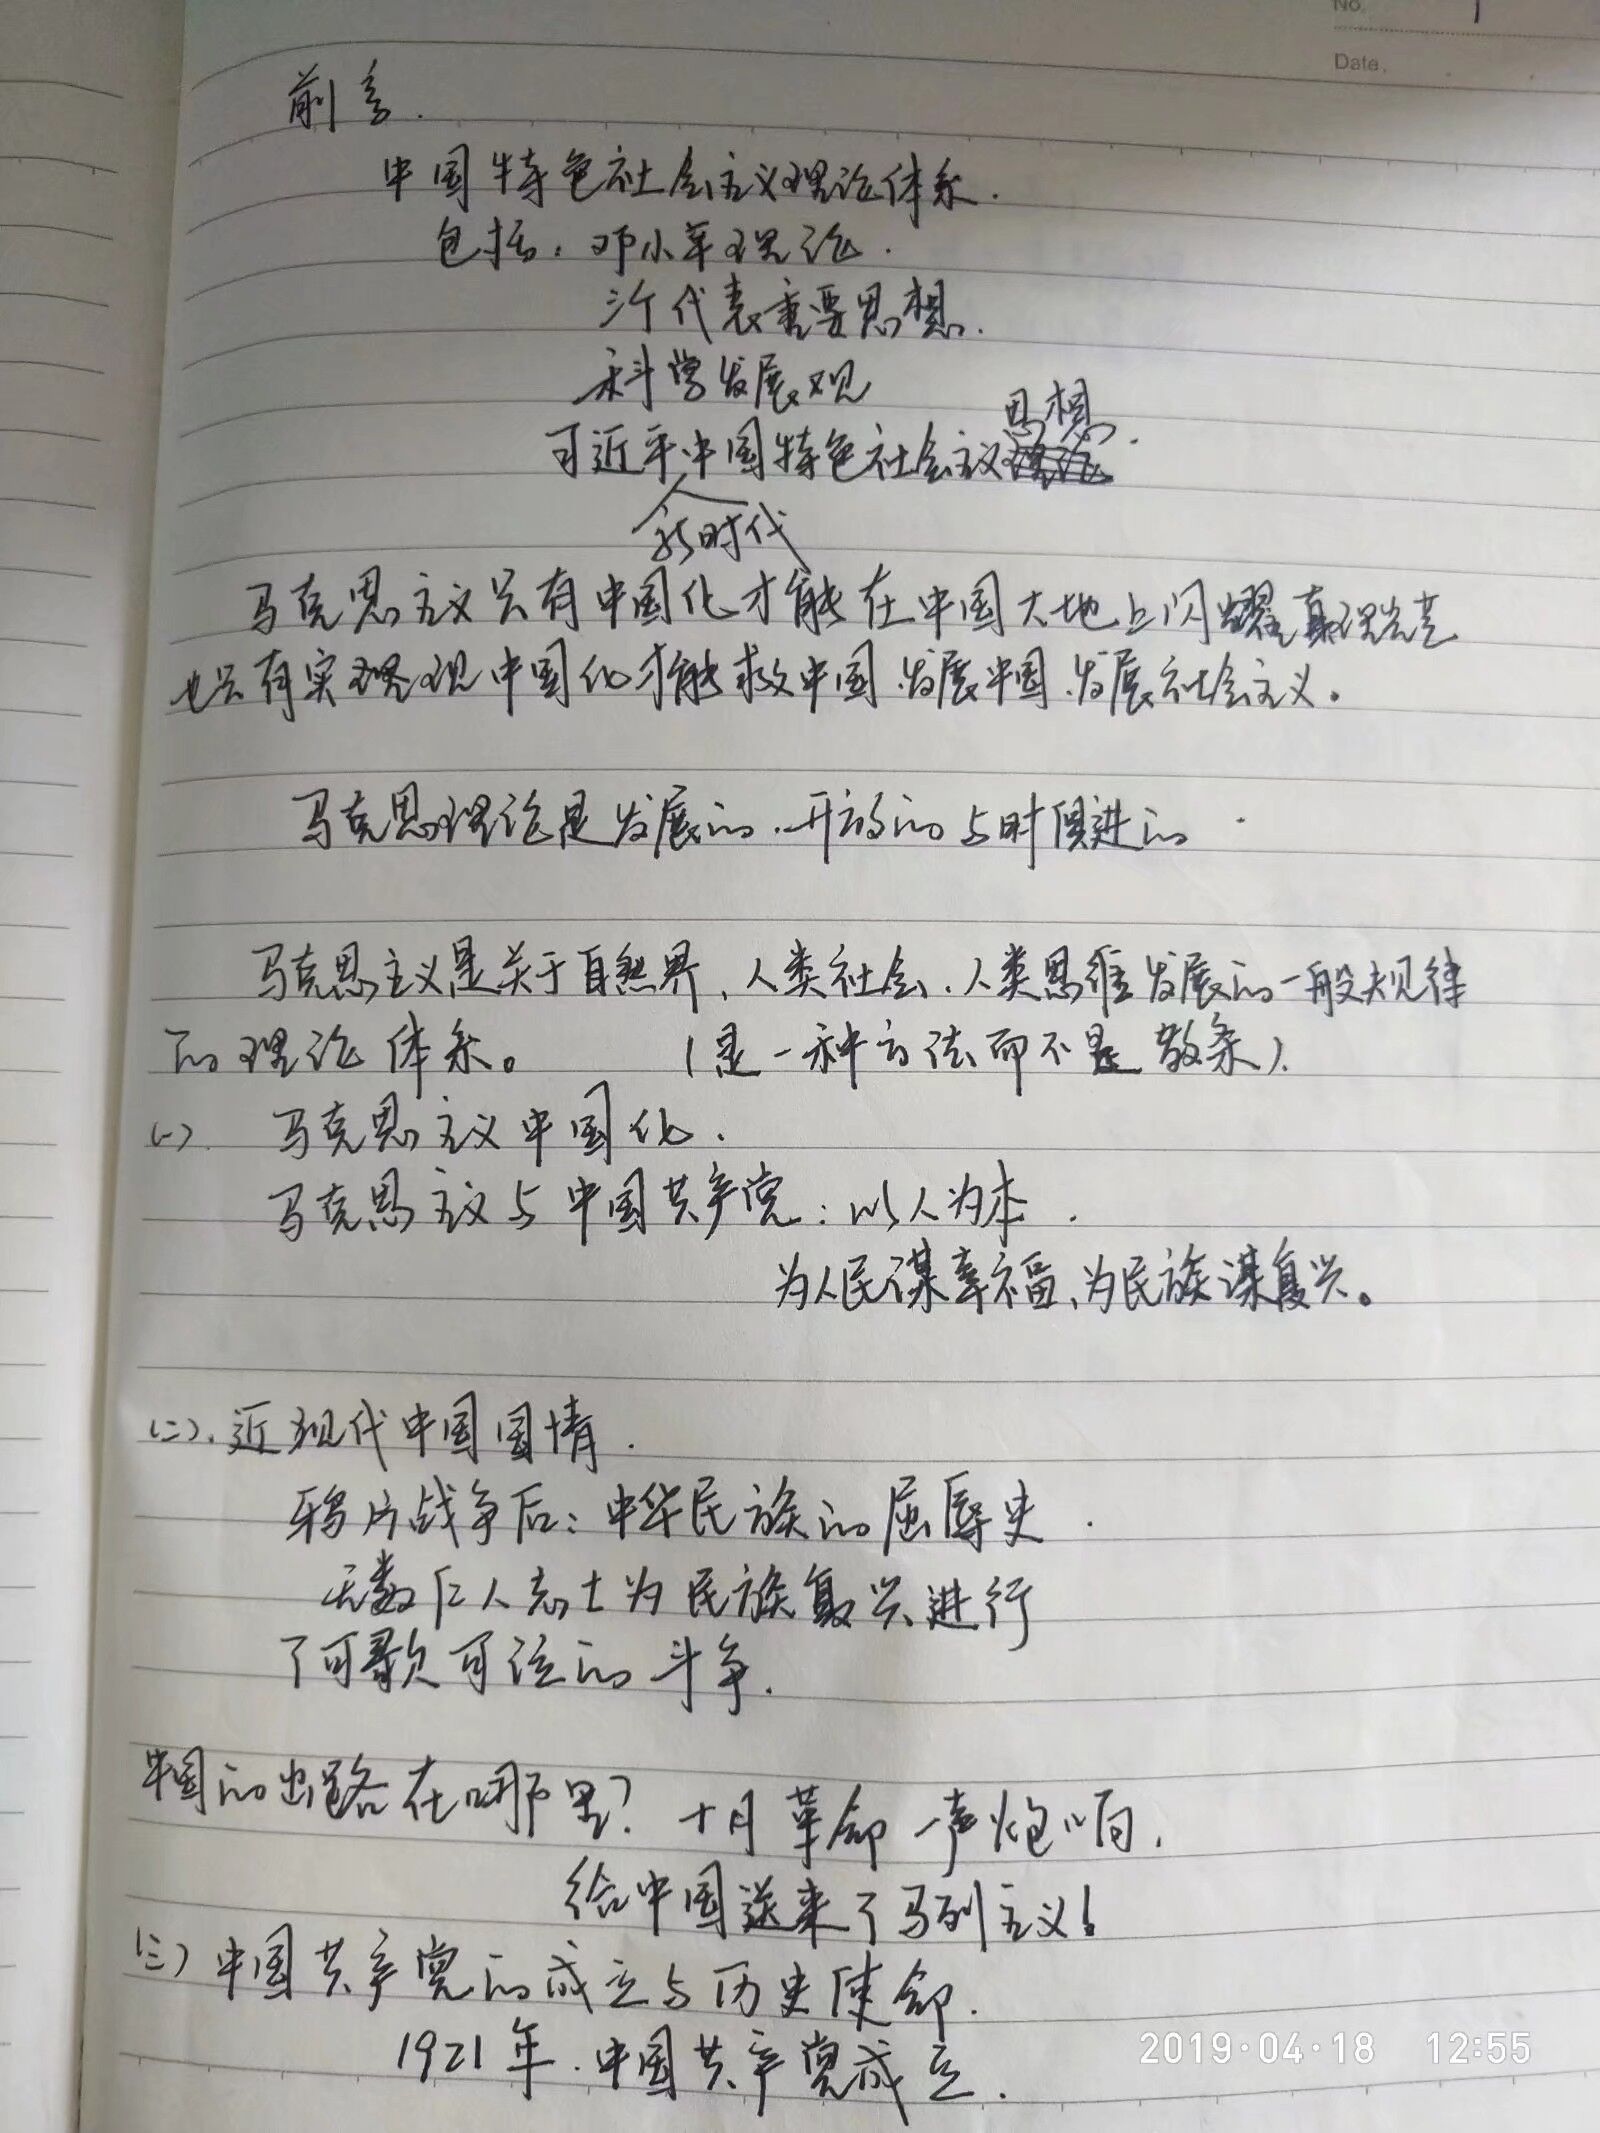 No. 1
Date.
前言.
中国特色社会主义理论体系.
包括：邓小平理论.
三个代表重要思想.
科学发展观
思想.
习近平中国特色社会主义
新时代
马克思主义只有中国化才能在中国大地上闪耀真理光芒
也只有实现中国化才能救中国、发展中国、发展社会主义。
马克思理论是发展的、开放的与时俱进的.
马克思主义是关于自然界、人类社会、人类思维发展的一般规律
的理论体系。 (是一种方法而不是教条).
(一) 马克思主义中国化.
马克思主义与中国共产党：以人为本.
为人民谋幸福、为民族谋复兴。
(二). 近现代中国国情.
鸦片战争后：中华民族的屈辱史.
无数仁人志士为民族复兴进行
了可歌可泣的斗争.
中国的出路在哪里? 十月革命一声炮响,
给中国送来了马列主义!
(三) 中国共产党的成立与历史使命.
1921年.中国共产党成立.
2019·04·18 12:55